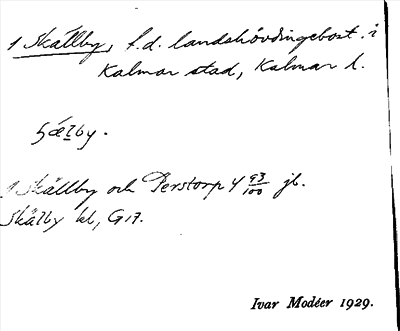 1 Skällby, f.d. landshövdingebost. i
Kalmar stad, Kalmar l.
ʂæ̀lby.
1 Skällby och Perstorp 4 93/100 jb.
Skälby kl, G17.
Ivar Modéer 1929.